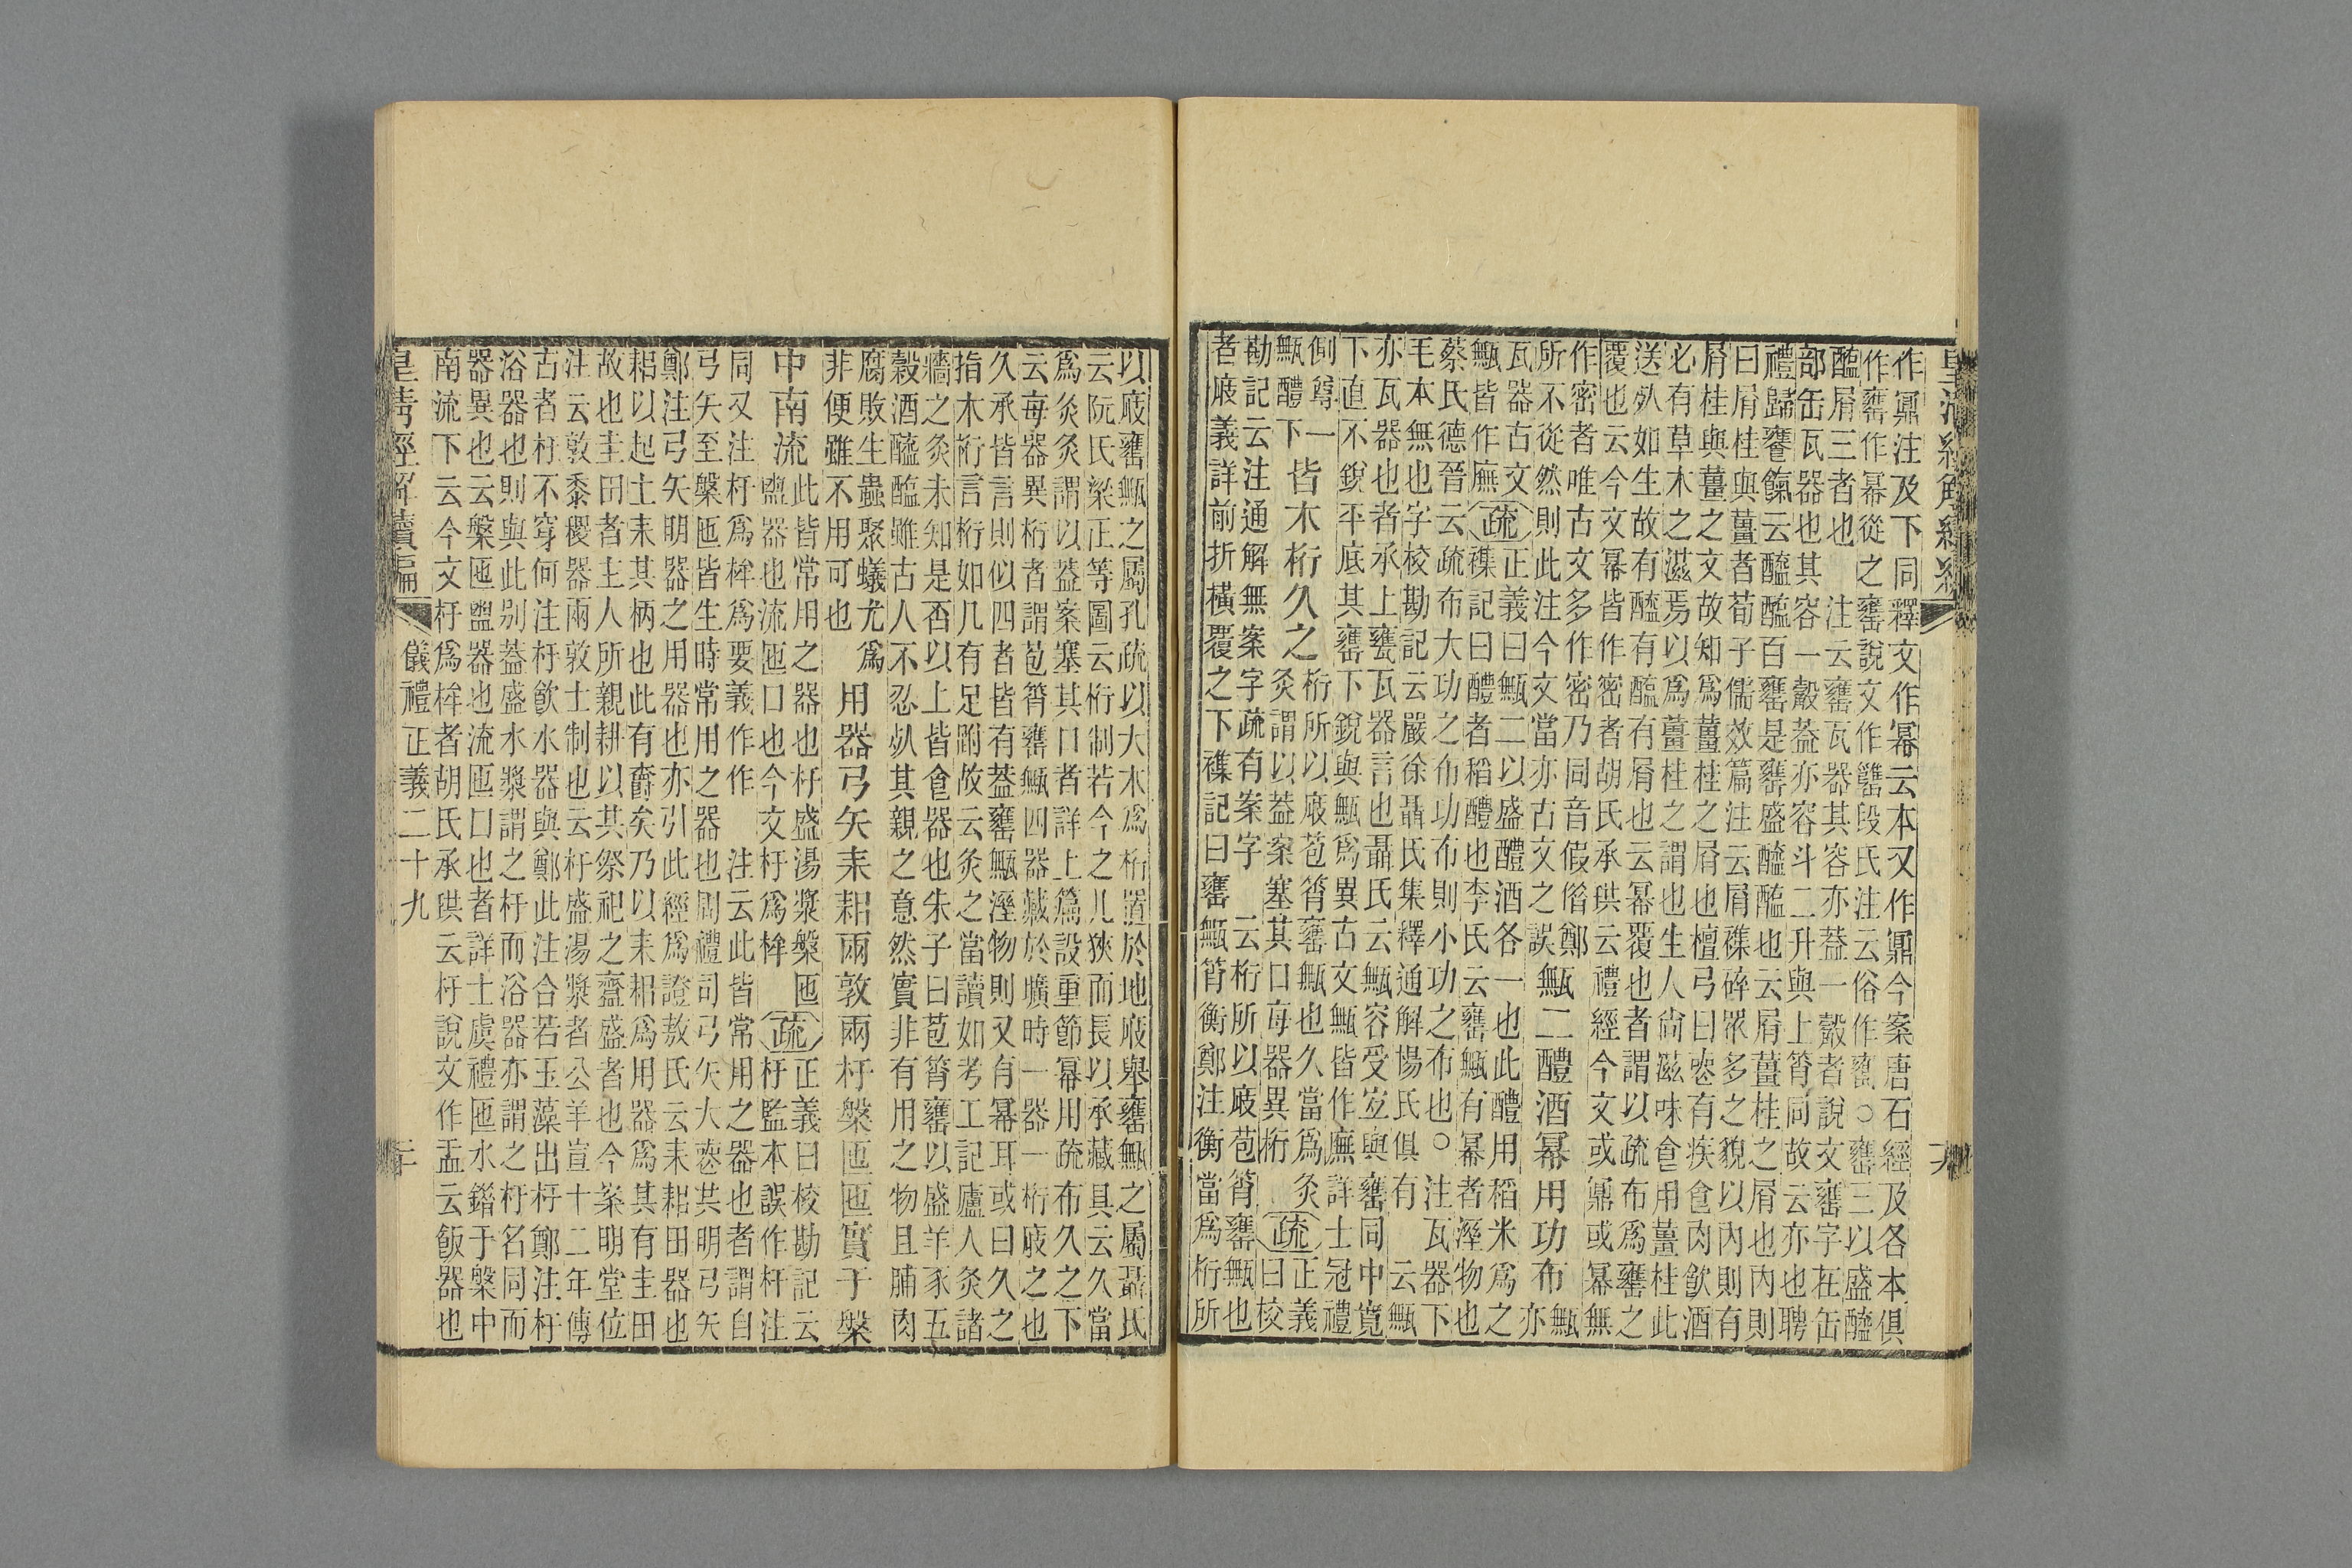 作鼏注及下同釋文作冪云本又作鼏今案唐石經及各本俱
作罋作冪從之罋說文作罋段氏注云俗作甕○罋三以盛醯
醢屑三者也　注云罋瓦器其容亦蓋一觳者說文罋字在缶
部缶瓦器也其容一觳蓋亦容斗二升與上筲同故云亦也聘
禮歸饔餼云醯醢百罋是罋盛醯醢也云屑薑桂之屑也內則
曰屑桂與薑者荀子儒效篇注云屑襍碎眾多之貌以內則有
屑桂與薑之文故知爲薑桂之屑也檀弓曰喪有疾食肉飲酒
必有草木之滋焉以爲薑桂之謂也生人尙滋味食用薑桂此
送死如生故有醯有醢有屑也云冪覆也者謂以疏布爲罋之
覆也云今文冪皆作密者胡氏承珙云禮經今文或鼏或冪無
作密者唯古文多作密乃同音假借鄭
所不從然則此注今文當亦古文之誤
甒二醴酒冪用功布
甒
亦
瓦器古文
甒皆作廡
疏
正義曰甒二以盛醴酒各一也此醴用稻米爲之
襍記曰醴者稻醴也李氏云罋甒有冪者溼物也
蔡氏德晉云疏布大功之布功布則小功之布也○注瓦器下
毛本無也字校勘記云嚴徐聶氏集釋通解楊氏俱有　云甒
亦瓦器也者承上甕瓦器言也聶氏云甒容受宐與罋同中寬
下直不銳平底其罋下銳與甒爲異古文甒皆作廡詳士冠禮
側尊一
甒醴下
皆木桁久之
桁所以庪苞筲罋甒也久當爲灸
灸謂以蓋案塞其口每器異桁
疏
正義
曰校
勘記云注通解無案字疏有案字　云桁所以庪苞筲罋甒也
者庪義詳前折橫覆之下襍記曰罋甒筲衡鄭注衡當爲桁所
以庪罋甒之屬孔疏以大木爲桁置於地庪舉罋甒之屬聶氏
云阮氏梁正等圖云桁制若今之几狹而長以承藏具云久當
爲灸灸謂以蓋案塞其口者詳上篇設重節冪用疏布久之下
云每器異桁者謂苞筲罋甒四器藏於壙時一器一桁庪之也
久承皆言則似四者皆有蓋罋甒溼物則又有冪耳或曰久之
指木桁言桁如几有足跗故云灸之當讀如考工記廬人灸諸
牆之灸未知是否以上皆食器也朱子曰苞筲罋以盛羊豕五
穀酒醯醢雖古人不忍死其親之意然實非有用之物且脯肉
腐敗生蟲聚蟻尤爲
非便雖不用可也
用器弓矢耒耜兩敦兩杅槃匜匜實于槃
中南流
此皆常用之器也杅盛湯漿槃匜
盥器也流匜口也今文杅爲桙
疏
正義曰校勘記云
杅監本誤作杆注
同又注杅爲桙爲要義作作　注云此皆常用之器也者謂自
弓矢至槃匜皆生時常用之器也周禮司弓矢大喪共明弓矢
鄭注弓矢明器之用器也亦引此經爲證敖氏云耒耜田器也
耜以起土耒其柄也此有奮矣乃以耒耜爲用器爲其有圭田
故也圭田者主人所親耕以其祭祀之齍盛者也今案明堂位
注云敦黍稷器兩敦士制也云杅盛湯漿者公羊宣十二年傳
古者杅不穿何注杅飮水器與鄭此注合若玉藻出杅鄭注杅
浴器也則與此別蓋盛水漿謂之杅而浴器亦謂之杅名同而
器異也云槃匜盥器也流匜口也者詳士虞禮匜水錯于槃中
南流下云今文杅爲桙者胡氏承珙云杅說文作盂云飯器也
皇清經解續編　儀禮正義二十九